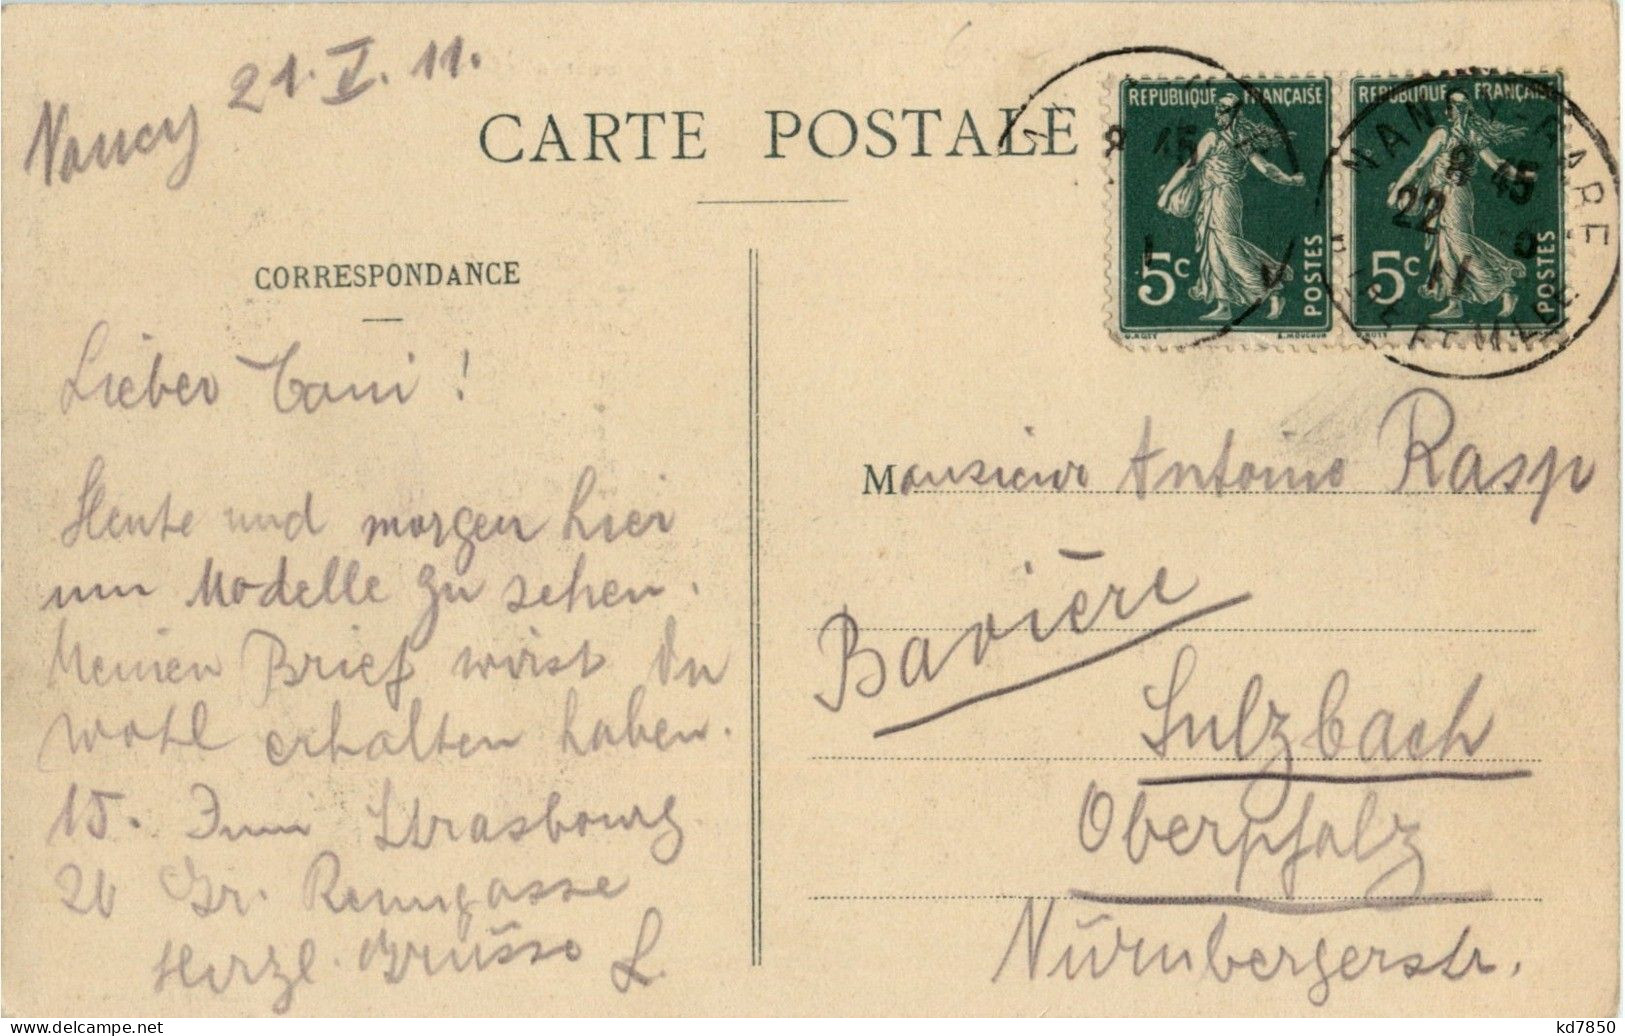 Nancy 21.V.11.
CARTE POSTALE
CORRESPONDANCE
Lieber Toni!
Heute und morgen hier
um Modelle zu sehen.
Meinen Brief wirst Du
wohl erhalten haben.
15. Juni Strasbourg
26 Gr. Renngasse
Herzl. Grüsse L.
REPUBLIQUE FRANÇAISE
5c POSTES
REPUBLIQUE FRANÇAISE
5c POSTES
NANCY-GARE
8 45
22 -5
11
Monsieur Antonio Rasp
Bavière
Sulzbach
Oberpfalz
Nürnbergerstr.
kd7850